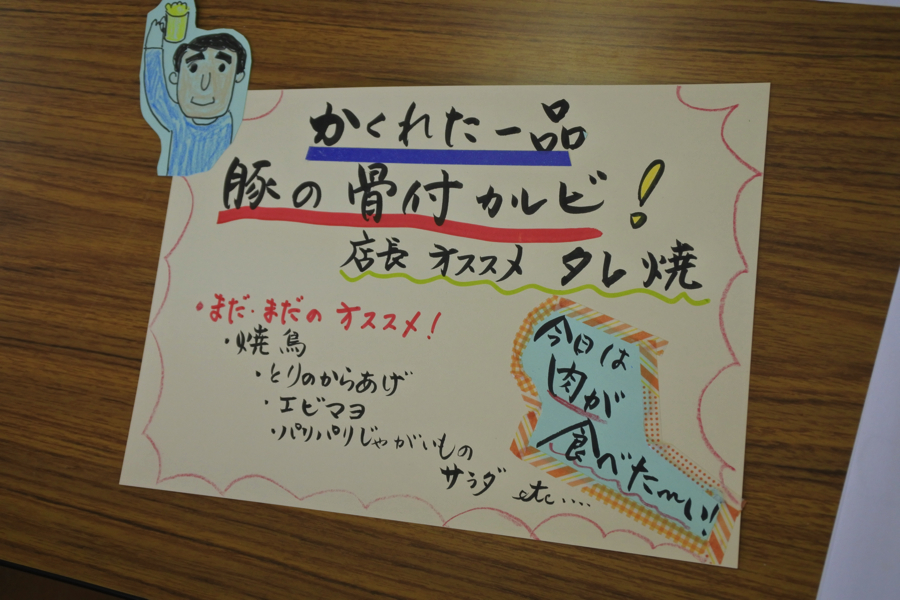 かくれた一品
豚の骨付カルビ!
店長オススメ タレ焼
・まだ・まだのオススメ!
・焼鳥
・とりのからあげ
・エビマヨ
・パリパリじゃがいもの
サラダ etc....
今日は
肉が
食べた〜い!